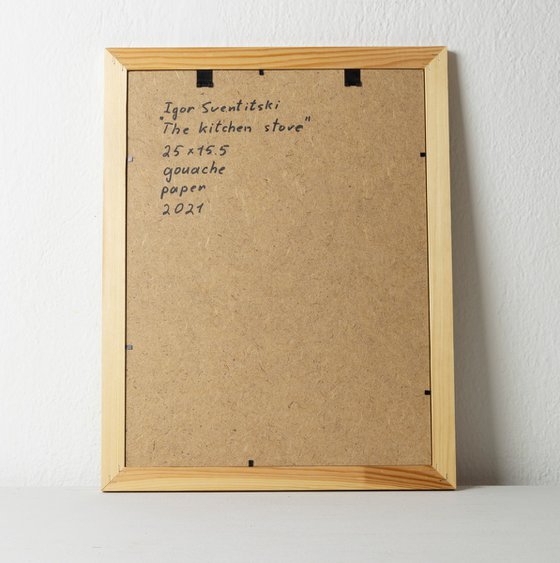 Igor Sventitski
"The kitchen stove"
25×15.5
gouache
paper
2021